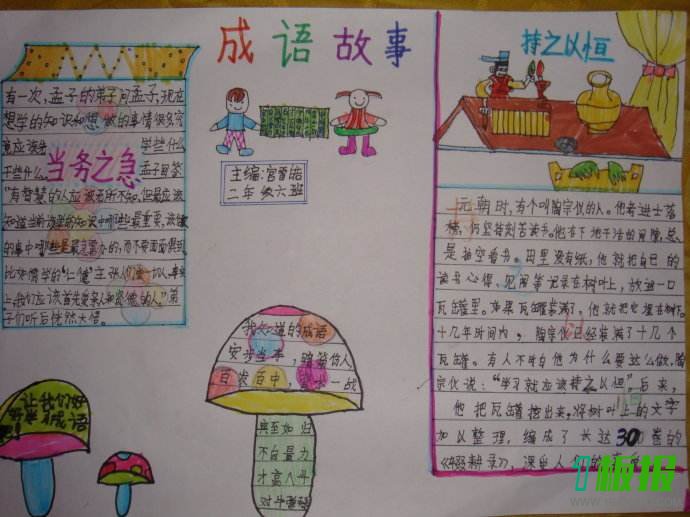 成语故事
主编:宫
二年级六班
有一次,孟子的弟子问孟子,现在
想学的知识和想做的事情很多,究
竟应该先 学些什么
干些什么。 孟子回答
当务之急
"有智慧的人应该无所不知,但最应该
知道当前 的知识中哪些最重要,该做
的事中哪些是最急需办的,而不要面面俱到
我们应该首先 的人"弟
子们听后恍然大悟。
持之以恒
元朝时,有个叫陶宗仪的人。他考进士落
榜,仍坚持刻苦读书。他在下地干活的间隙,总
是抽空看书。田里没有纸,他就把自己的
读书心得、见闻等记录在树叶上,放进一口
瓦罐里。如果瓦罐装满了,他就把它埋在树下。
十几年时间内,陶宗仪已经装满了十几个
瓦罐。有人不明白他为什么要这么做,陶
宗仪说:"学习就应该持之以恒"后来,
他把瓦罐挖出来,将树叶上的文字
加以整理,编成了长达30卷的
《辍耕录》,深
我知道的成语
安步当车,
百发百中,一战
不自量力
才高八斗
对牛弹琴
让我们好
成语
板报